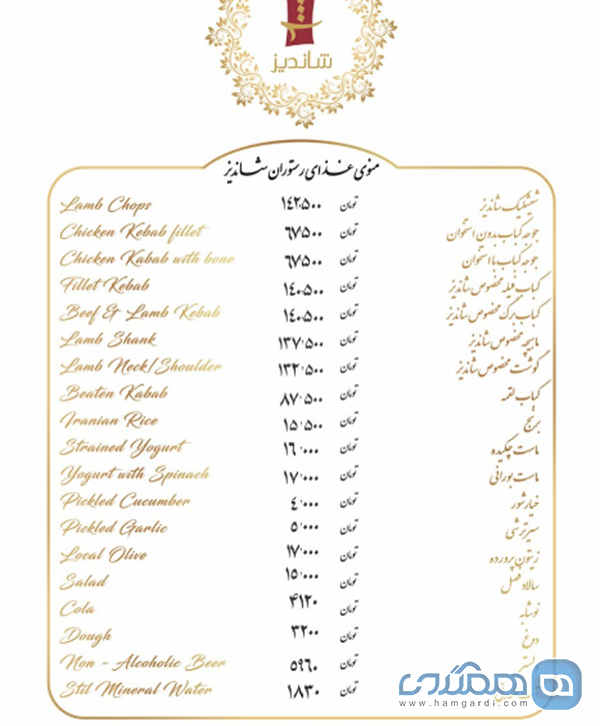 شاندیز
منوی غذای رستوران شاندیز
Lamb Chops ۱۴۲۵۰۰ تومان شیشلیک شاندیز
Chicken Kebab fillet ۶۷۵۰۰ تومان جوجه کباب بدون استخوان
Chicken Kabab with bone ۶۷۵۰۰ تومان جوجه کباب با استخوان
Fillet Kebab ۱۴۰۵۰۰ تومان کباب فیله مخصوص شاندیز
Beef & Lamb Kebab ۱۴۰۵۰۰ تومان کباب برگ مخصوص شاندیز
Lamb Shank ۱۳۷٬۵۰۰ تومان ماهیچه مخصوص شاندیز
Lamb Neck/Shoulder ۱۳۲٬۵۰۰ تومان گوشت مخصوص شاندیز
Beaten Kabab ۸۷٬۵۰۰ تومان کباب لقمه
Iranian Rice ۱۵٬۵۰۰ تومان برنج
Strained Yogurt ۱۶٬۰۰۰ تومان ماست چکیده
Yogurt with Spinach ۱۷٬۰۰۰ تومان ماست بورانی
Pickled Cucumber ۴٬۰۰۰ تومان خیارشور
Pickled Garlic ۵٬۰۰۰ تومان سیر ترشی
Local Olive ۱۷٬۰۰۰ تومان زیتون پرورده
Salad ۱۵٬۰۰۰ تومان سالاد فصل
Cola ۴۱۲۰ تومان نوشابه
Dough ۳۲۰۰ تومان دوغ
Non - Alcoholic Beer ۵۹۶۰ تومان
Stil Mineral Water ۱۸۳۰ تومان
همگردی
www.hamgardi.com